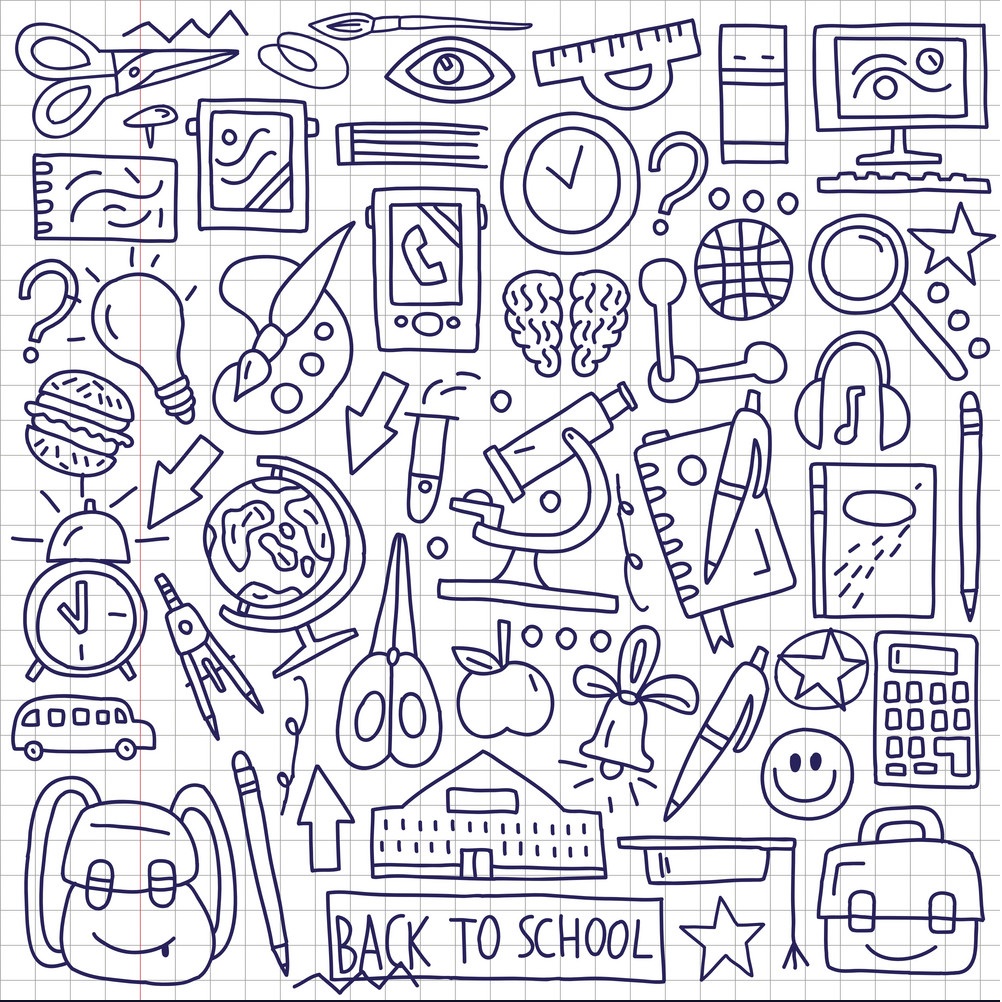 BACK TO SCHOOL